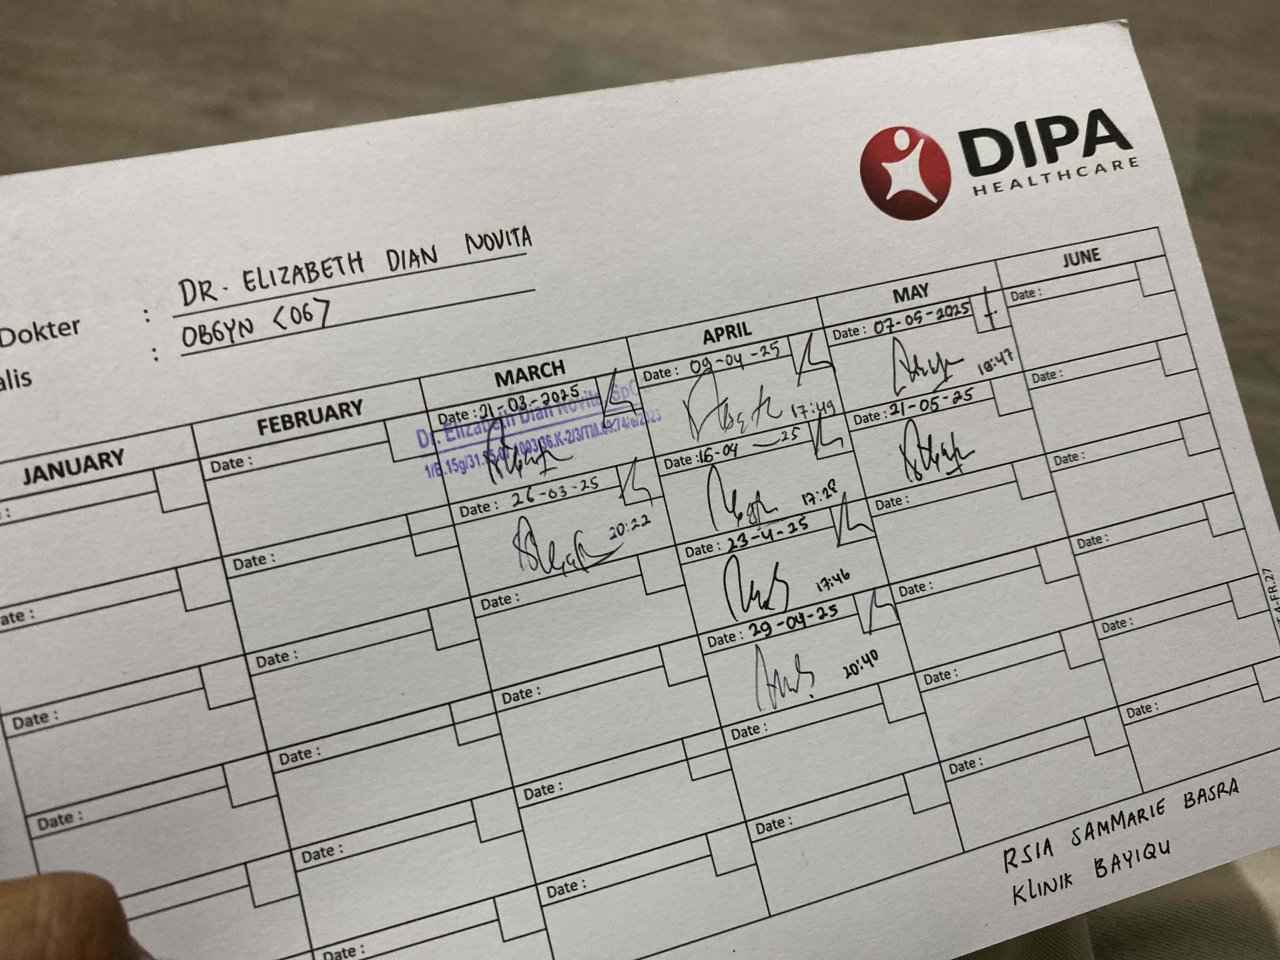 DIPA
HEALTHCARE
Dokter : DR. ELIZABETH DIAN NOVITA
alis : OBGYN <06>
JANUARY FEBRUARY MARCH APRIL MAY JUNE
Date : Date : 21-03-2025 Date : 09-04-25 Date : 07-05-2025 Date :
Dr. Elizabeth Dian Novita, SpO
17:49 18:47
Date : Date : 26-03-25 Date : 16-04-25 Date : 21-05-25 Date :
20:22 17:28
Date : Date : Date : 23-4-25 Date : Date :
17:46
Date : Date : Date : Date : 29-04-25 Date : Date :
20:40
Date : Date : Date : Date : Date : Date :
Date : Date : Date : Date : Date :
Date :
RSIA SAMMARIE BASRA
KLINIK BAYIQU